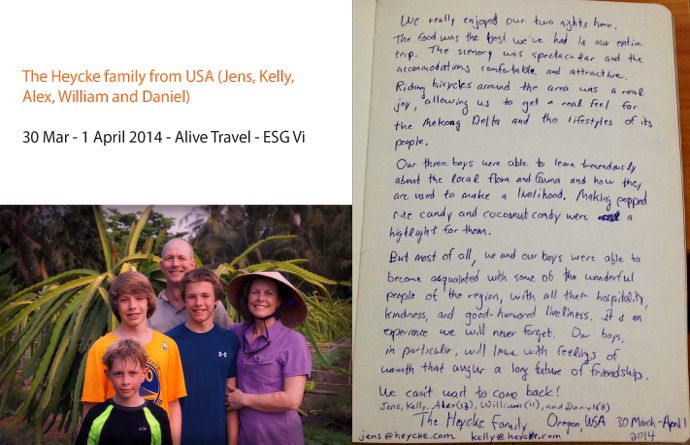 The Heycke family from USA (Jens, Kelly,
Alex, William and Daniel)
30 Mar - 1 April 2014 - Alive Travel - ESG Vi
We really enjoyed our two nights here.
The food was the best we've had in our entire
trip. The scenery was spectacular and the
accommodations comfortable and attractive.
Riding bicycles around the area was a real
joy, allowing us to get a real feel for
the Mekong Delta and the lifestyles of its
people.
Our three boys were able to learn tremendously
about the local flora and fauna and how they
are used to make a livelihood. Making popped
rice candy and cocoanut candy were a
highlight for them.
But most of all, we and our boys were able to
become acquainted with some of the wonderful
people of the region, with all their hospitality,
kindness, and good-humored liveliness. It is an
experience we will never forget. Our boys,
in particular, will leave with feelings of
warmth that augur a long future of friendships.
We can't wait to come back!
Jens, Kelly, Alex(13), William (11), and Daniel(8)
The Heycke Family Oregon, USA 30 March - April 1
jens@heycke.com kelly@heycke.com 2014